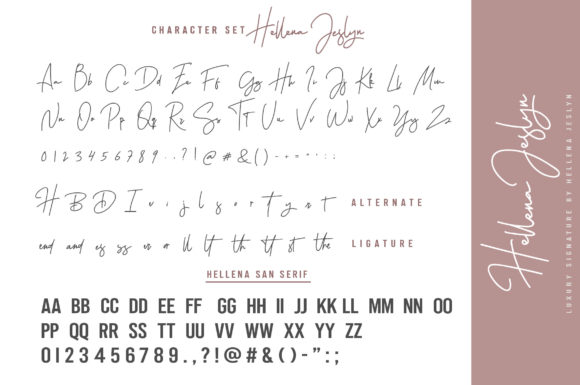 CHARACTER SET Hellena Jeslyn
Aa Bb Cc Dd Ee Ff Gg Hh Ii Jj Kk Ll Mm
Nn Oo Pp Qq Rr Ss Tt Uu Vv Ww Xx Yy Zz
0123456789.,?!@#&()-+=":;
H B D I v i j l s o r t y s t ALTERNATE
end and es ys er or ll lt th tt st the LIGATURE
HELLENA SAN SERIF
AA BB CC DD EE FF GG HH II JJ KK LL MM NN OO
PP QQ RR SS TT UU VV WW XX YY ZZ
0123456789.,?!@#&()-":;
Hellena Jeslyn
LUXURY SIGNATURE BY HELLENA JESLYN